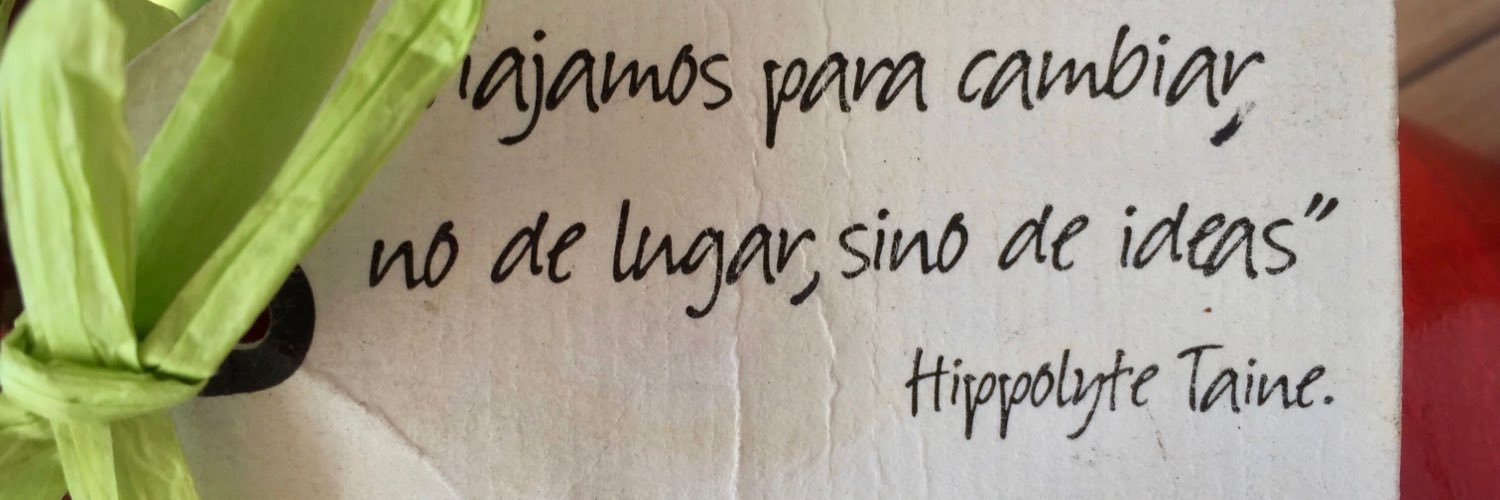 iajamos para cambiar,
no de lugar, sino de ideas”
Hippolyte Taine.